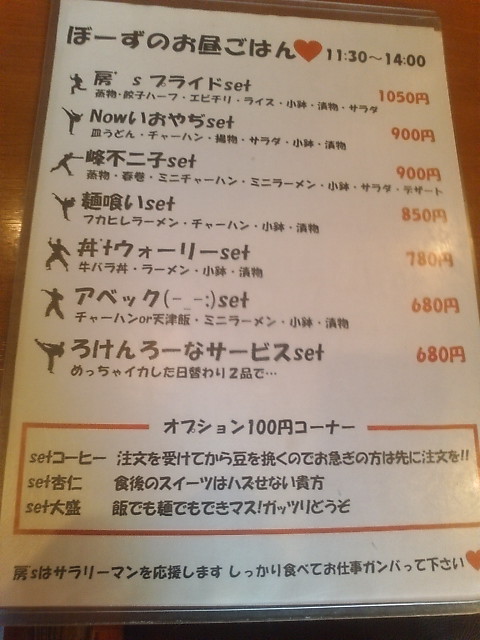 ぼーずのお昼ごはん♥11:30〜14:00
房's プライドset 1050円
蒸物・餃子ハーフ・エビチリ・ライス・小鉢・漬物・サラダ
Nowいおやぢset 900円
皿うどん・チャーハン・揚物・サラダ・小鉢・漬物
峰不二子set 900円
蒸物・春巻・ミニチャーハン・ミニラーメン・小鉢・サラダ・デザート
麺喰いset 850円
フカヒレラーメン・チャーハン・小鉢・漬物
丼'tウォーリーset 780円
牛バラ丼・ラーメン・小鉢・漬物
アベック(-_-:)set 680円
チャーハンor天津飯・ミニラーメン・小鉢・漬物
ろけんろーなサービスset 680円
めっちゃイカした日替わり2品で…
オプション100円コーナー
setコーヒー 注文を受けてから豆を挽くのでお急ぎの方は先に注文を!!
set杏仁 食後のスイーツはハズせない貴方
set大盛 飯でも麺でもできマス!ガッツリどうぞ
房sはサラリーマンを応援します しっかり食べてお仕事ガンバって下さい♥